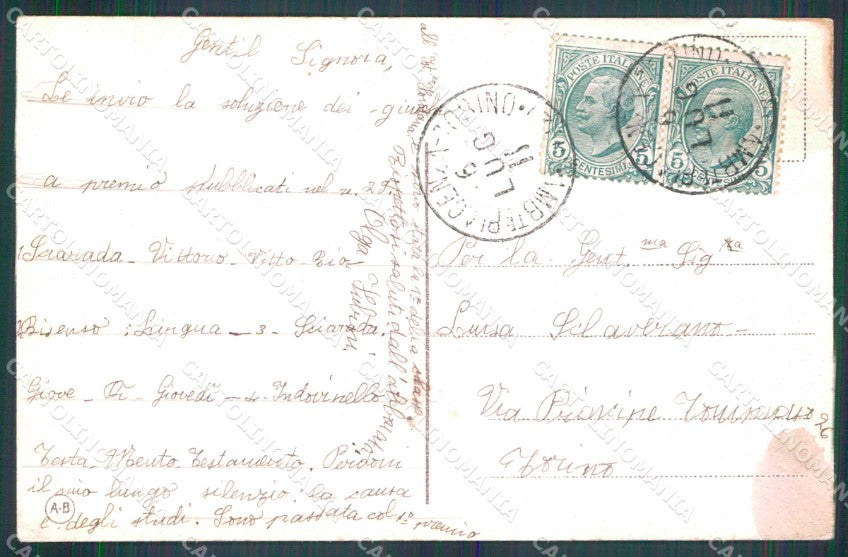 Gentil Signora,
Le invio la soluzione dei giuochi
a premio pubblicati nel n. 25.
1 Sciarada - Vittorio - Vitto - Rio -
Bisenso : Lingua - 3 - Sciarada:
Giove - Dì - Giovedì - 4 - Indovinello
Testa - Mento - Testamento. Perdoni
il mio lungo silenzio, la causa
è degli studi. Sono passata col 1º premio
Rispettosi saluti dall'
Olga
A-B
Per la Gent.ma Sig.ra
Luisa Schaverano -
Via Principe Tommaso 26
Torino
POSTE ITALIANE
5 CENTESIMI 5
POSTE ITALIANE
5
AMB.TE PIACENZA - TORINO
LUG
11